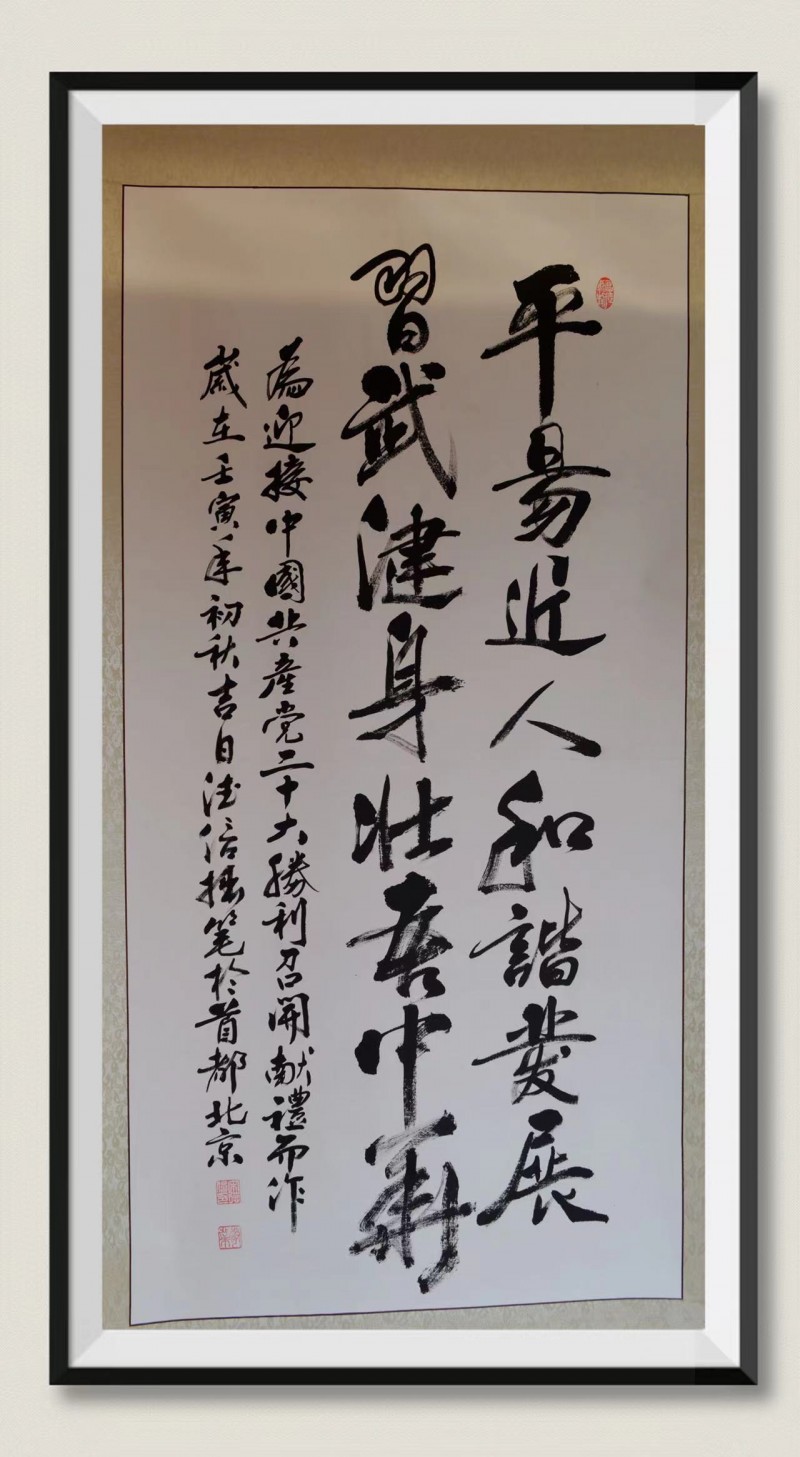 平易近人和諧發展
習武健身壯吾中華
為迎接中國共產党二十大勝利召開献禮而作
歲在壬寅年初秋吉日德信揮笔於首都北京